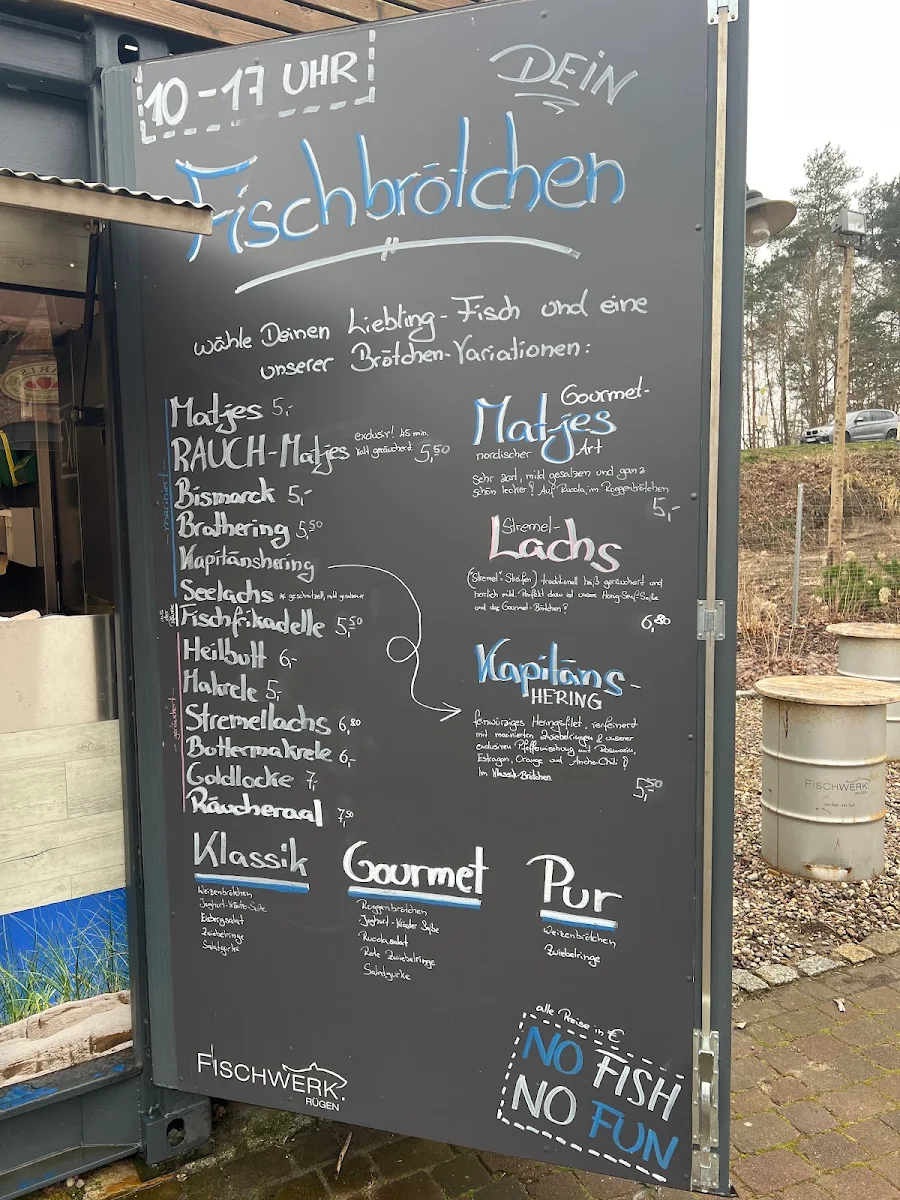 10-17 UHR
DEIN
Fischbrötchen
wähle Deinen Liebling-Fisch und eine
unserer Brötchen-Variationen:
Matjes 5,-
RAUCH-Matjes exclusiv! 45 min. kalt geräuchert 5,50
- mariniert -
Bismarck 5,-
Brathering 5,50
Kapitänshering
Seelachs
Fischfrikadelle 5,50
- geräuchert -
Heilbutt 6,-
Makrele 5,-
Stremellachs 6,80
Buttermakrele 6,-
Goldlocke 7,
Räucheraal 7,50
Gourmet-
Matjes
nordischer Art
sehr zart, mild gesalzen und ganz
schön lecker! Auf Rucola im Roggenbrötchen
5,-
Stremel-
Lachs
("Stremel"=Streifen) traditionell heiß geräuchert und
herrlich mild. Perfekt dazu ist unsere Honig-Senf-Soße
und das Gourmet-Brötchen!
6,80
Kapitäns-
HERING
feinwürziges Heringsfilet, verfeinert
mit marinierten Zwiebelringen & unserer
exklusiven Pfeffermischung mit Rosmarin,
Estragon, Orange und Ancho-Chili!
Im Klassik-Brötchen.
5,50
Klassik
Weizenbrötchen
Joghurt-Kräuter-Soße
Eisbergsalat
Zwiebelringe
Salatgurke
Gourmet
Roggenbrötchen
Joghurt-Kräuter Soße
Rucolasalat
Rote Zwiebelringe
Salatgurke
Pur
Weizenbrötchen
Zwiebelringe
alle Preise in €
NO FISH
NO FUN
FISCHWERK
RÜGEN
FISCHWERK
RÜGEN
no fish - no fun